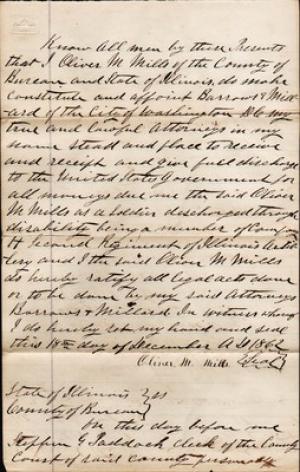 Know All men by these Presents
that I Oliver M Mills of the County of
Bureau and State of Illinois, do make
constitute and appoint Barrows & Mill-
ard of the City of Washington D.C. my
true and lawful Attorneys in my
name stead and place to receive
and receipt and give full discharge
to the United States Government for
all moneys due me the said Oliver
M Mills as a soldier discharged through
disability being a member of Company
H Second Regiment of Illinois Artil-
lery and I the said Oliver M Mills
do hereby ratify all legal acts done
or to be done by my said Attorneys
Barrows & Millard In witness whereof
I do hereby set my hand and seal
this day of December A.D 1862
Oliver M. Mills Seal
State of Illinois } ss
County of Bureau }
On this day before me
Stephen G Paddock clerk of the County
Court of said county personally